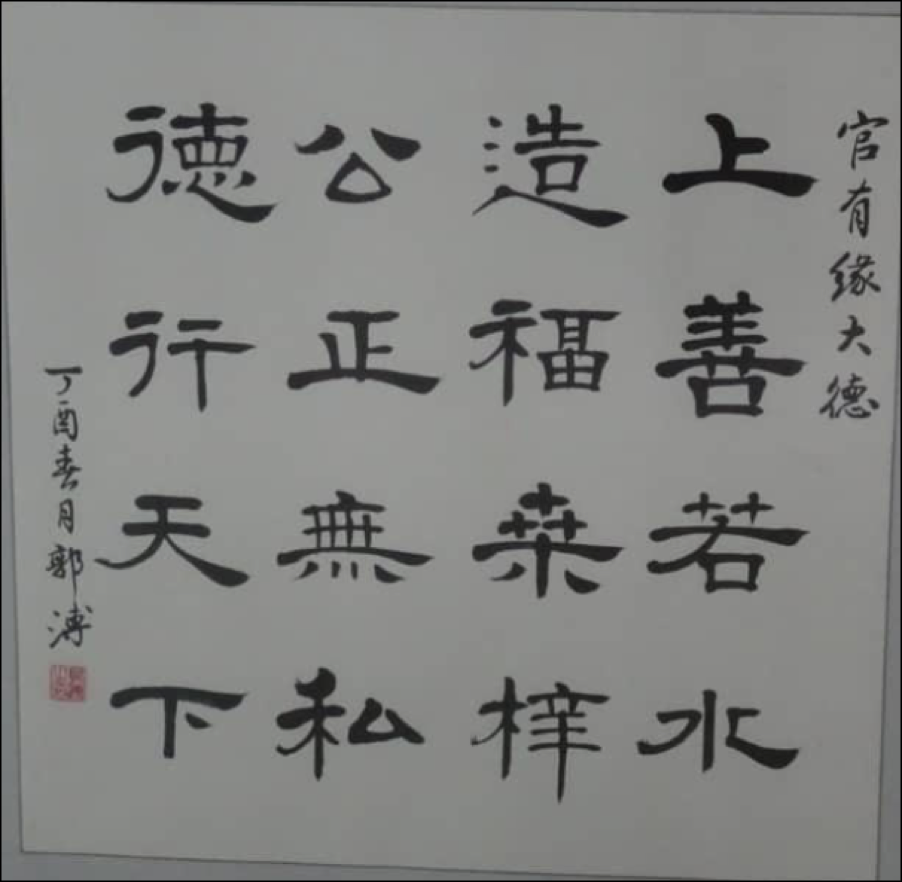 官有缘大德
上善若水
造福桒梓
公正無私
徳行天下
丁酉春月郭溥